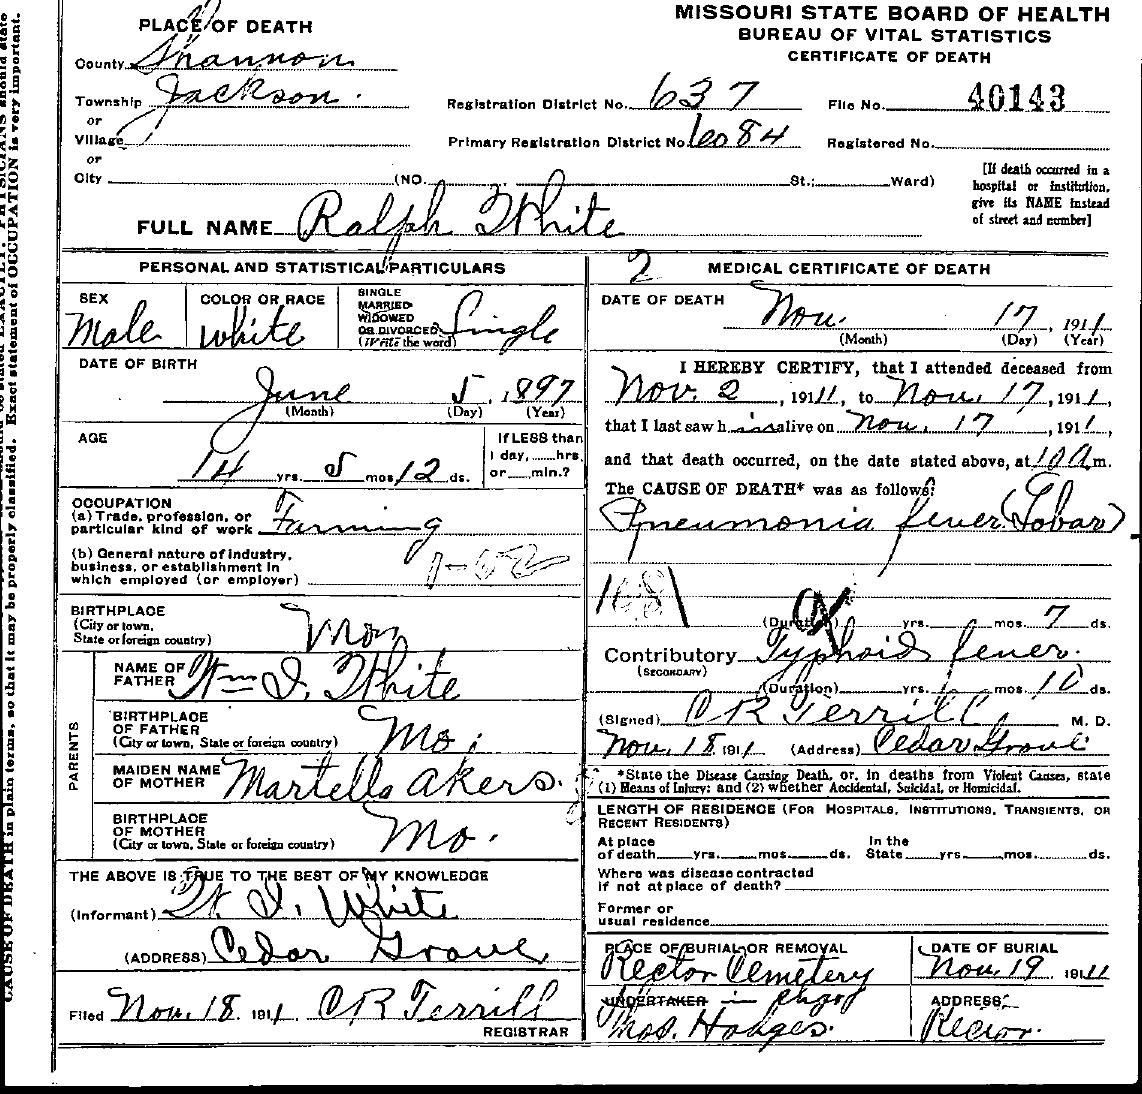 CAUSE OF DEATH in plain terms, so that it may be properly classified. Exact statement of OCCUPATION is very important.
stated EXACTLY. PHYSICIANS should state
MISSOURI STATE BOARD OF HEALTH
BUREAU OF VITAL STATISTICS
CERTIFICATE OF DEATH
PLACE OF DEATH
County Shannon
Township Jackson
or
Village
or
City (NO. St.; Ward)
Registration District No. 637 File No. 40143
Primary Registration District No. 6084 Registered No.
[If death occurred in a
hospital or institution,
give its NAME instead
of street and number]
FULL NAME Ralph White
PERSONAL AND STATISTICAL PARTICULARS
SEX
Male
COLOR OR RACE
White
SINGLE
MARRIED
WIDOWED
OR DIVORCED
(Write the word) Single
DATE OF BIRTH
June 5, 1897
(Month) (Day) (Year)
AGE
14 yrs. 5 mos. 12 ds.
If LESS than
1 day, hrs.
or min.?
OCCUPATION
(a) Trade, profession, or
particular kind of work Farming
(b) General nature of industry,
business, or establishment in
which employed (or employer)
BIRTHPLACE
(City or town,
State or foreign country) Mo.
PARENTS
NAME OF
FATHER Wm I. White
BIRTHPLACE
OF FATHER
(City or town, State or foreign country) Mo.
MAIDEN NAME
OF MOTHER Martella Akers.
BIRTHPLACE
OF MOTHER
(City or town, State or foreign country) Mo.
THE ABOVE IS TRUE TO THE BEST OF MY KNOWLEDGE
(Informant) W. I. White
(ADDRESS) Cedar Grove
Filed Nov. 18. 1911 C R Terrill
REGISTRAR
2 MEDICAL CERTIFICATE OF DEATH
DATE OF DEATH
Nov. 17, 1911
(Month) (Day) (Year)
I HEREBY CERTIFY, that I attended deceased from
Nov. 2, 1911, to Nov. 17, 1911,
that I last saw him alive on Nov. 17, 1911,
and that death occurred, on the date stated above, at 10 a m.
The CAUSE OF DEATH* was as follows:
Pneumonia fever (Lobar)
(Duration) yrs. mos. 7 ds.
Contributory Typhoid fever.
(SECONDARY)
(Duration) yrs. mos. 10 ds.
(Signed) C R Terrill, M. D.
Nov. 18 1911 (Address) Cedar Grove
*State the Disease Causing Death, or, in deaths from Violent Causes, state
(1) Means of Injury; and (2) whether Accidental, Suicidal, or Homicidal.
LENGTH OF RESIDENCE (FOR HOSPITALS, INSTITUTIONS, TRANSIENTS, OR
RECENT RESIDENTS)
At place In the
of death yrs. mos. ds. State yrs. mos. ds.
Where was disease contracted
if not at place of death?
Former or
usual residence
PLACE OF BURIAL OR REMOVAL
Rector Cemetery
DATE OF BURIAL
Nov. 19 1911
UNDERTAKER in chg of
Thos. Hodges.
ADDRESS
Rector.